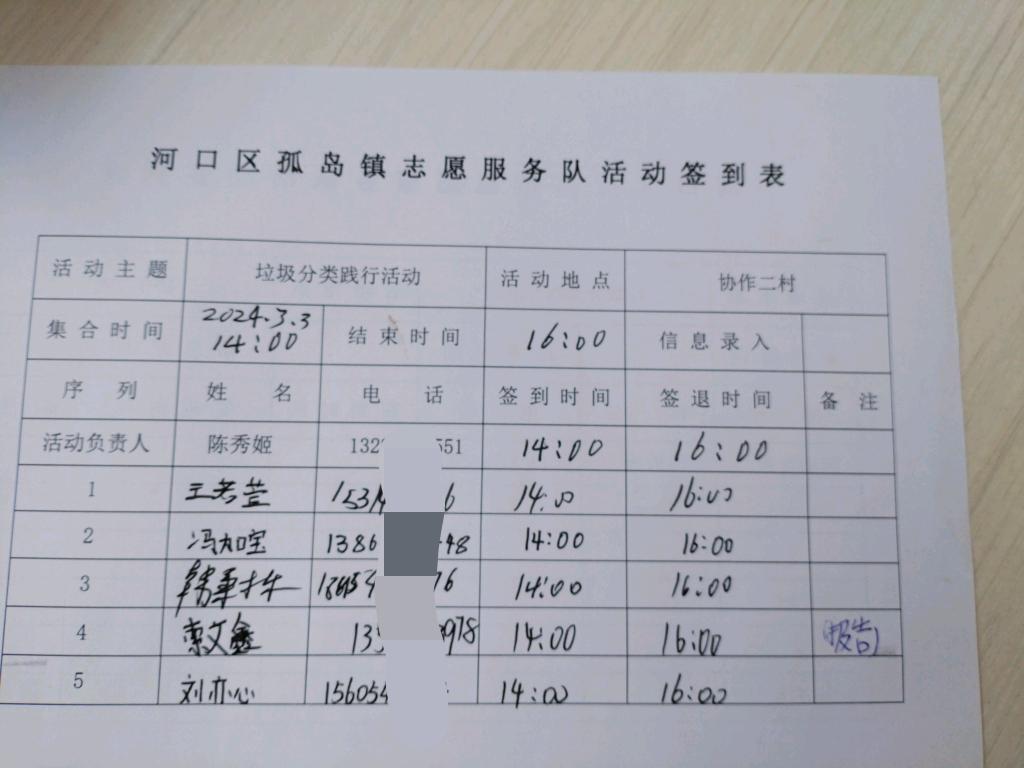 河口区孤岛镇志愿服务队活动签到表
活动主题 垃圾分类践行活动 活动地点 协作二村
集合时间 2024.3.3 14:00 结束时间 16:00 信息录入
序列 姓名 电话 签到时间 签退时间 备注
活动负责人 陈秀姬 132 551 14:00 16:00
1 王若萱 1531 6 14:00 16:00
2 冯加宝 1386 48 14:00 16:00
3 76 14:00 16:00
4 文鑫 13 978 14:00 16:00 报告
5 刘亦心 156054 14:00 16:00